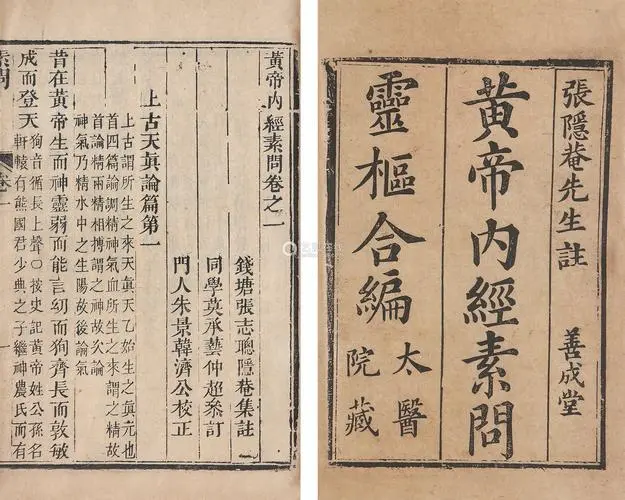 張隱菴先生註
善成堂
黄帝內經素問
靈樞合編
太醫
院藏
黃帝內經素問卷之一
錢塘張志聰隱菴集註
同學莫承藝仲超叅訂
門人朱景韓濟公校正
上古天眞論篇第一
上古謂所生之來天眞天乙始生之眞元也
首四篇論調精神氣血所生之來謂之精故
首論精兩精相搏謂之神故次論
神氣乃精水中之生陽故後論氣
昔在黃帝生而神靈弱而能言幼而狥齊長而敦敏
成而登天
狥音循長上聲〇按史記黃帝姓公孫名
軒轅有熊國君少典之子繼神農氏而有
素問